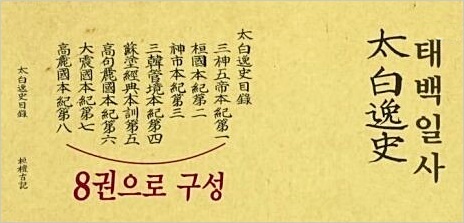 태백일사
太白逸史
太白逸史目錄
三神五帝本紀第一
桓國本紀第二
神市本紀第三
三韓管境本紀第四
蘇塗經典本訓第五
高句麗國本紀第六
大震國本紀第七
高麗國本紀第八
太白逸史目錄
桓檀古記
8권으로 구성